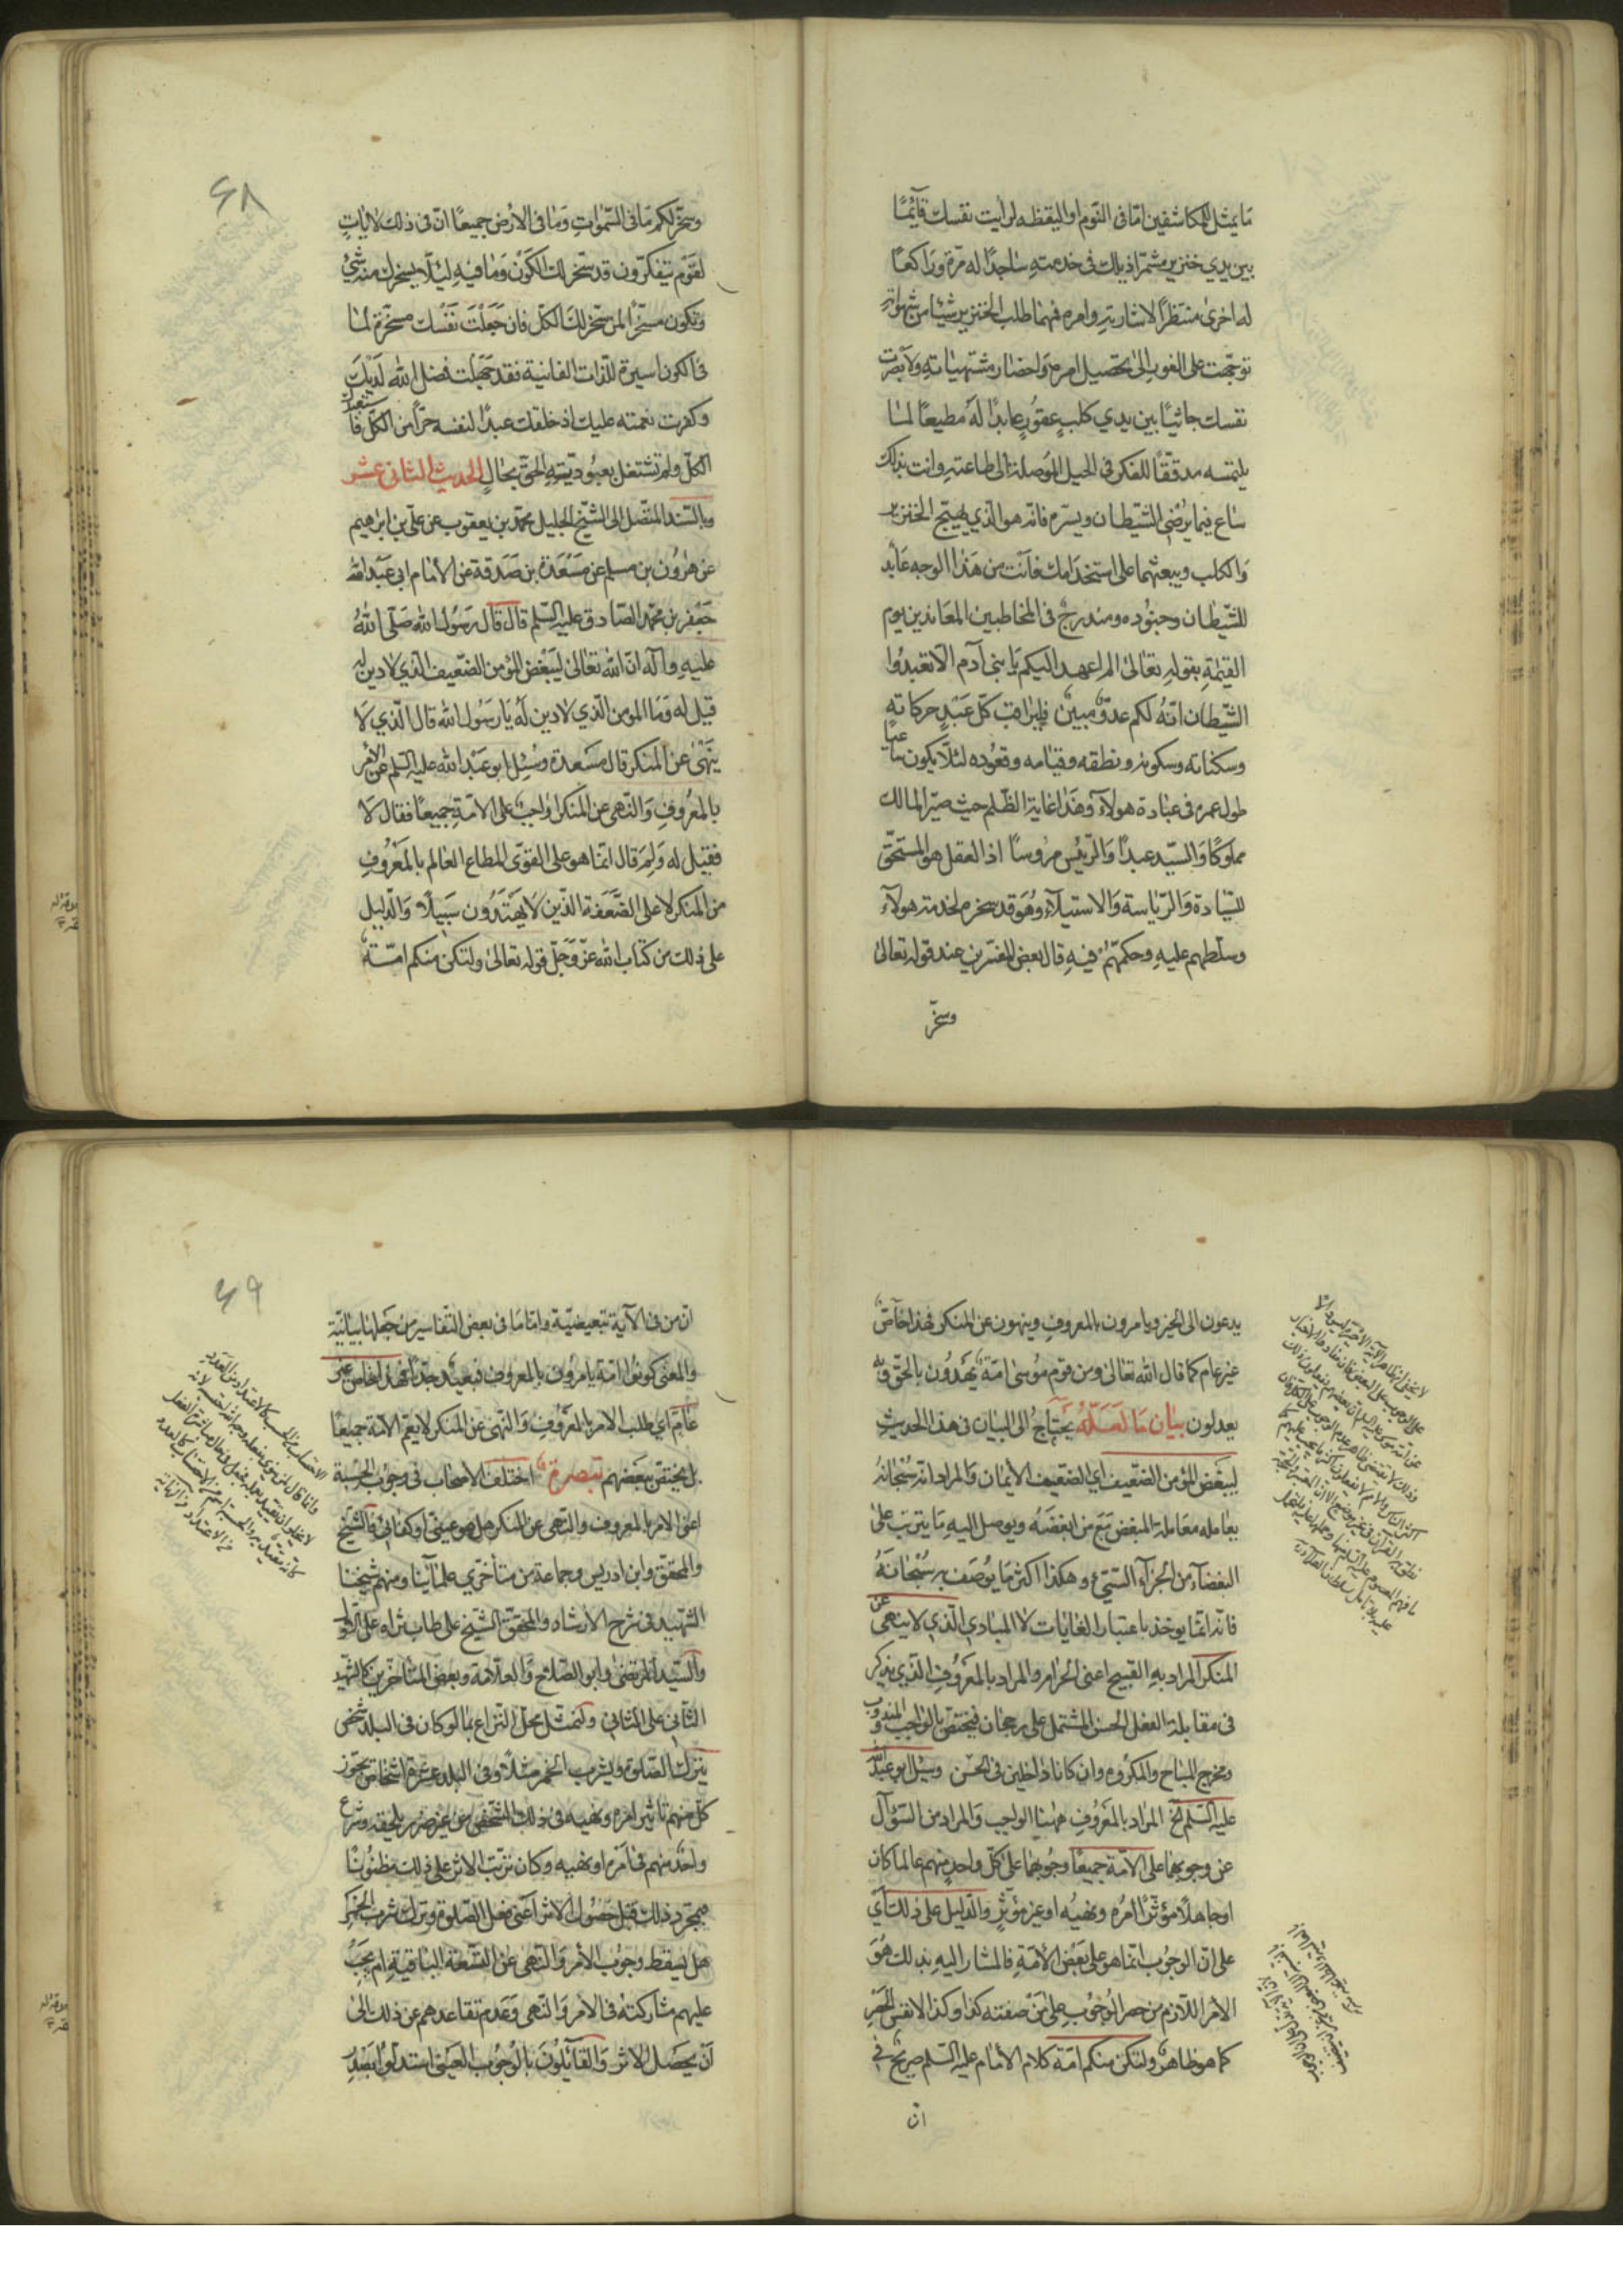 ما يمثل للمكاشفين امّا فى النّوم او اليقظه لرايت نفسك قآئمًا
بين يدي خنزير مشمّرا ذيلك فى خدمتهِ ساجدًا له مرّة وراكعًا
له اخرى منتظرًا لاشارتهِ وامره فمهما طلب الخنزير شيئا من شهواته
توجّهت على الفور الى تحصيل امره واحضار مشتهياته ولابصرت
نفسك جاثيًا بين يدي كلبٍ عقورٍ عابدًا له مطيعًا لما
يلتمسه مدقّقًا للفكر فى الحيل الموصلة الى طاعتهِ وانت بذلك
ساع فيما يرضى الشّيطان ويسرّه فانّه هو الّذي يهيّج الخنزير
والكلب ويبعثهما على استخدامك فانت من هذا الوجه عابد
للشّيطان وجنوده ومندرج فى المخاطبين المعاندين يوم
القيمةِ بقولهِ تعالى الم اعهد اليكم يا بنى آدم الّا تعبدوا
الشّيطان انّه لكم عدوّ مبين فليراقب كلّ عبدٍ حركاته
وسكناته وسكوته ونطقه وقيامه وقعوده لئلّا يكون ساعيًا
طول عمره فى عبادة هولآء وهذا غاية الظّلم حيث صيّر المالك
مملوكًا والسيّد عبدًا والرّئيس مرءوسًا اذ العقل هو المستحقّ
للسّيادة والرّياسة والاستيلآء وهو قد سخّره لخدمة هولآء
وسلّطهم عليهِ وحكّمهم فيهِ قال بعض المفسّرين عند قوله تعالى
وسخّر
۶۸
وسخّر لكم ما فى السّموات وما فى الارض جميعًا انّ فى ذلك لايات
لقوم يتفكّرون قد سخّر لك الكون وما فيهِ لئلّا يسخرك منه شئ
وتكون مسخّرًا لمن سخّر لك الكلّ فان جعلت نفسك مسخّرة لما
فى الكون اسيرة للذات الفانية فقد جهلت فضل الله لديك
وكفرت نعمته عليك اذ خلقك عبدًا لنفسه حرًّا من الكلّ فاستعبدك
الكلّ ولم تشتغل بعبوديّتهِ الحقّ بحالٍ الحديث الثانى عشر
وبالسّند المتّصل الى الشيخ الجليل محمّد بن يعقوب عن علىّ بن ابراهيم
عن هرون بن مسلم عن مسعدة بن صدقة عن الامام ابى عبد الله
جعفر بن محمّد الصّادق عليه السّلم قال قال رسول الله صلّى الله
عليهِ وآله انّ الله تعالى ليبغض المؤمن الضّعيف الّذي لا دين له
قيل له وما المومن الّذي لا دين له يا رسول الله قال الّذي لا
ينهى عن المنكر قال مسعدة وسئل ابو عبد الله عليه السّلم عن الامر
بالمعروف والنّهى عن المنكر اواجب على الامّة جميعًا فقال لا
فقيل له ولم قال انّما هو على القوىّ المطاع العالم بالمعروف
من المنكر لا على الضّعفة الّذين لا يهتدون سبيلًا والدّليل
على ذلك من كتاب الله عزّ وجلّ قوله تعالى ولتكن منكم امّة
يدعون الى الخير ويامرون بالمعروف وينهون عن المنكر فهذا خاصّ
غير عام كما قال الله تعالى ومن قوم موسى امّة يهدون بالحقّ وبه
يعدلون بيان ما لعلّه يحتاج الى البيان فى هذا الحديث
ليبغض المؤمن الضّعيف اي الضّعيف الايمان والمراد انّه سبحانه
يعامله معاملة المبغض مع من ابغضه ويوصل اليهِ ما يترتب على
البغضآء من الجزآء السّيّئ وهكذا اكثر ما يوصف به سبحانه
فانّه انّما يوخذ باعتبار الغايات لا المبادي الّذي لا ينهى عن
المنكر المراد بهِ القبيح اعنى الحرام والمراد بالمعروف الّذي يذكر
فى مقابلة الفعل الحسن المشتمل على رجحان فيختصّ بالواجب والمندوب
ويخرج المباح والمكروه وان كانا داخلين فى الحسن وسئل ابو عبد الله
عليه السّلم الخ المراد بالمعروف ههنا الواجب والمراد من السّؤال
عن وجوبهما على الامّة جميعًا وجوبهما على كلّ واحدٍ منهم عالما كان
او جاهلًا مؤثّرًا امره ونهيه او غير مؤثّرٍ والدّليل على ذلك اي
على انّ الوجوب انّما هو على بعض الامّة فالمشار اليهِ بذلك هو
الامر اللازم من حصر الوجوب على من صفته كذا وكذا لا نفس الحصر
كما هو ظاهر ولتكن منكم امّة كلام الامام عليه السّلم صريح فى
انّ
۶۹
انّ من فى الآية تبعيضيّة وامّا ما فى بعض التفاسير من جعلها بيانيّة
والمعنى كونوا امّة يامرون بالمعروف فبعيد جدًّا فهذا خاصّ غير
عامّ اي طلب الامر بالمعروف والنّهى عن المنكر لا يعمّ الامّة جميعًا
بل يختصّ ببعضهم تبصرة اختلف الاصحاب فى وجوب الحسبة
اعنى الامر بالمعروف والنّهى عن المنكر هل هو عينىّ او كفائىّ فالشيخ
والمحقّق وابن ادريس وجماعة من متأخّري علمآئنا ومنهم شيخنا
الشّهيد فى شرح الارشاد والمحقّق الشّيخ علىّ طاب ثراه على الاوّل
والسّيّد المرتضى وابو الصّلاح والعلّامة وبعض المتأخّرين كالشّهيد
الثّانى على الثّانى ولنمثّل محلّ النّزاع بما لو كان فى البلد شخص
يترك الصّلوة ويشرب الخمر مثلًا وفى البلد عشرة اشخاص يجوّز
كلّ منهم تأثير امره ونهيه فى ذلك الشّخص من غير ضرر يلحقه وشرع
واحد منهم فى امره او نهيه وكان ترتّب الاثر على ذلك مظنونًا
فبمجرّد ذلك قبل حصول الاثر اعنى فعل الصّلوة وترك شرب الخمر
هل يسقط وجوب الامر والنّهى عن التّسعة الباقية ام يجب
عليهم مشاركته فى الامر والنّهى وعدم تقاعدهم عن ذلك الى
ان يحصل الاثر والقآئلون بالوجوب العينىّ استدلّوا بصدر